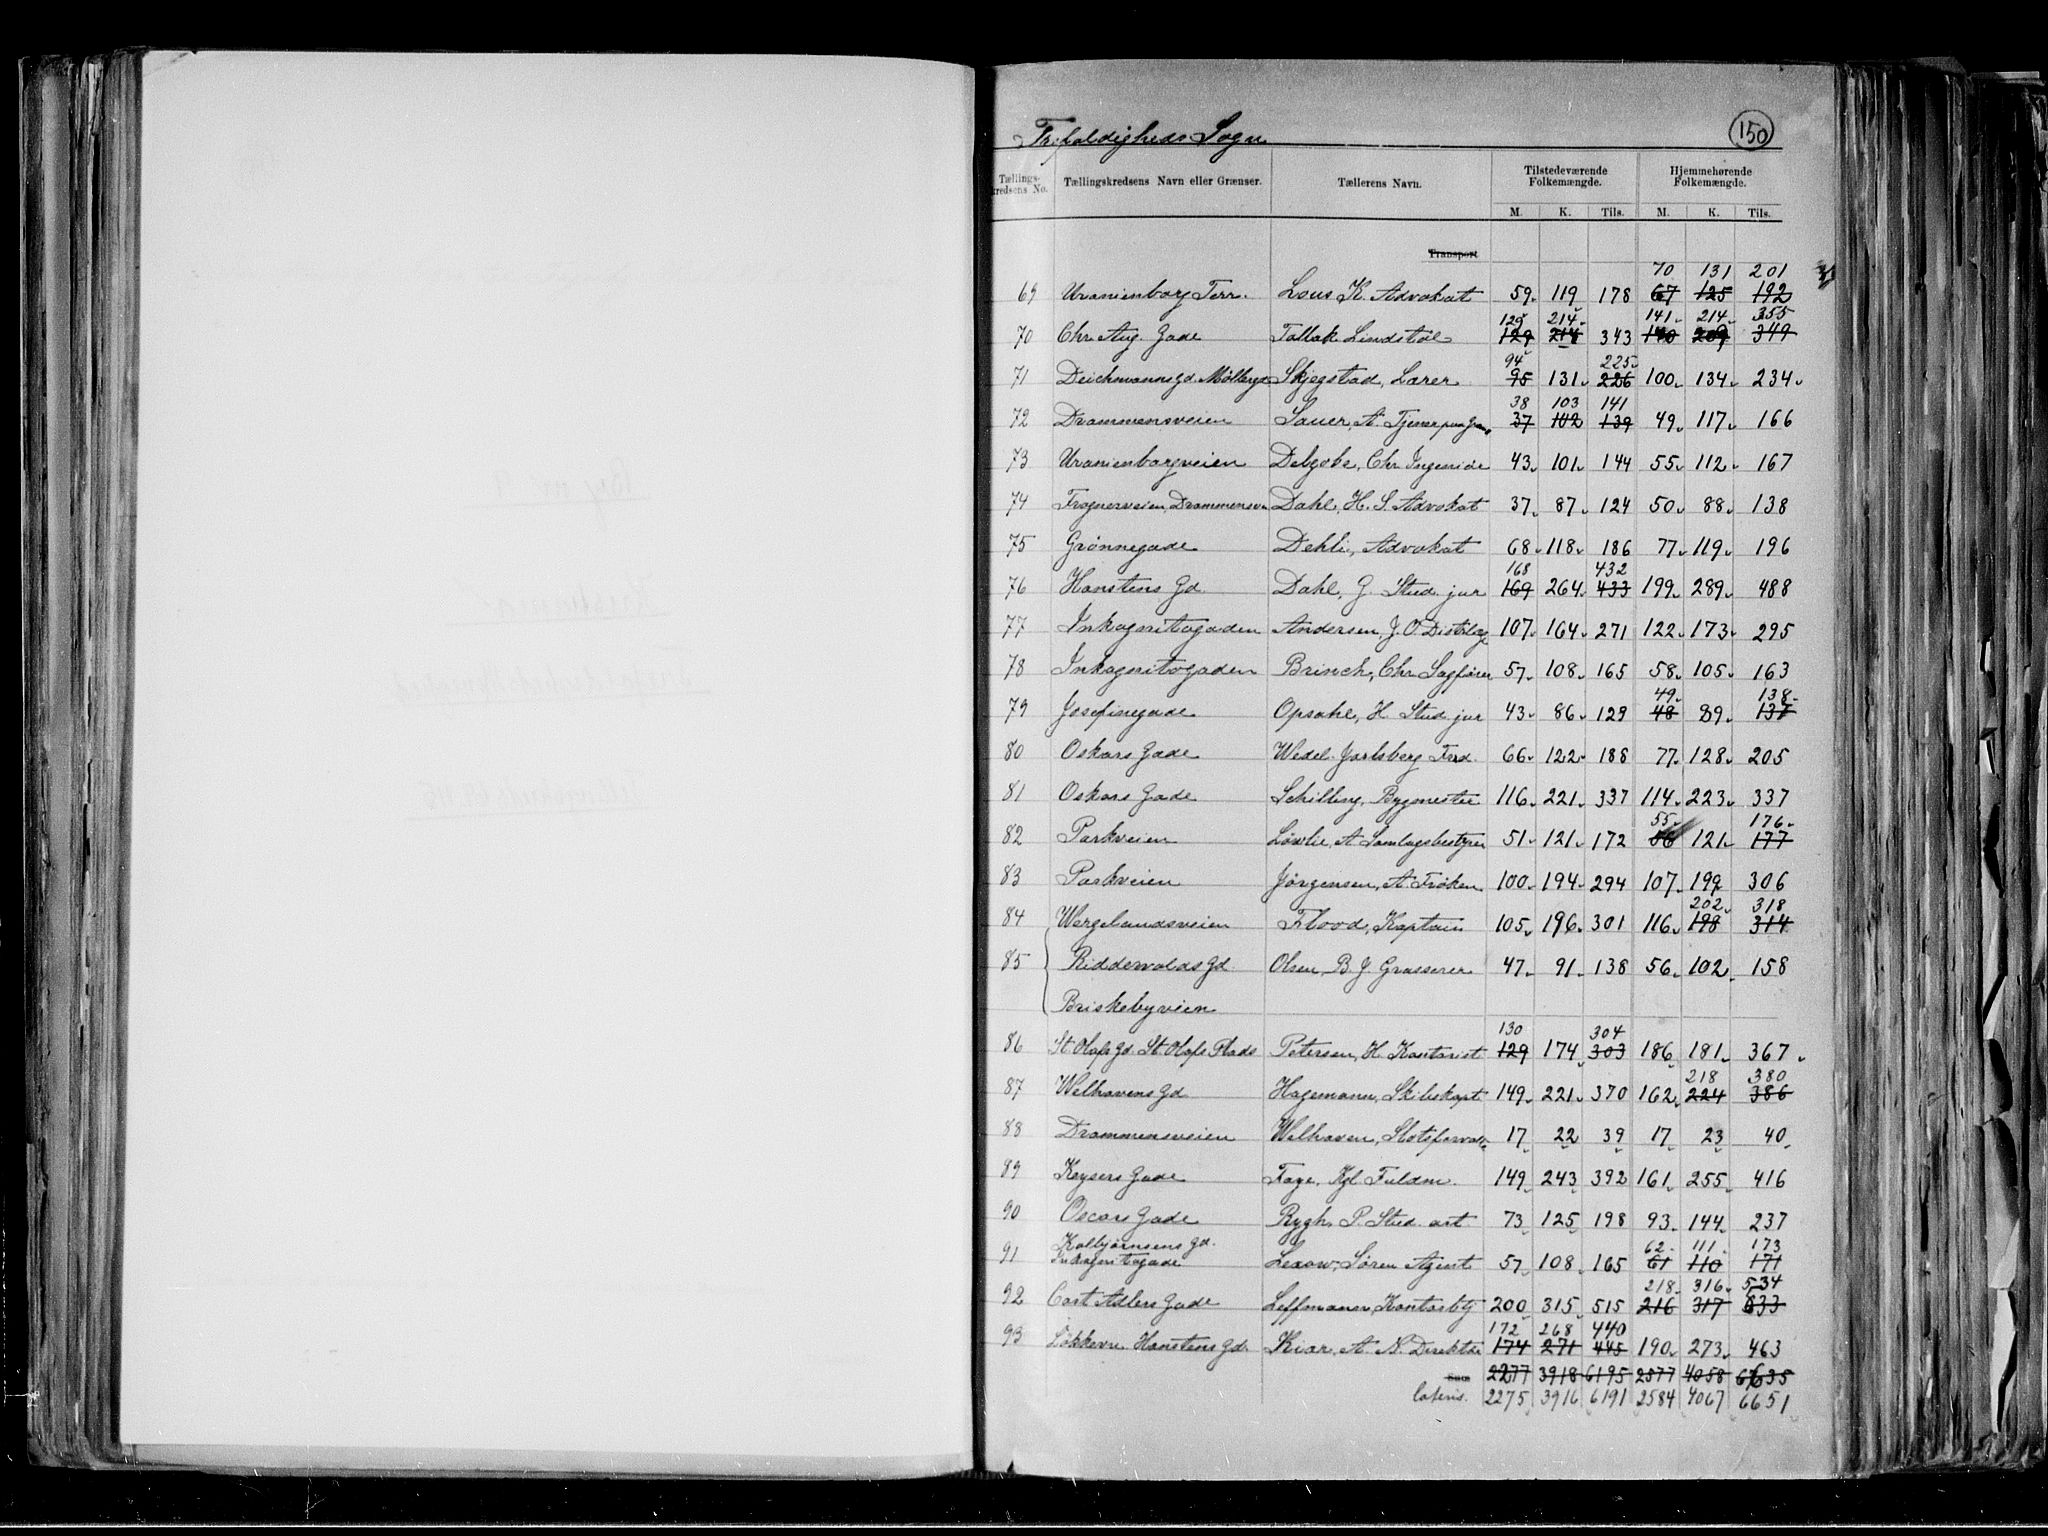 Trefoldigheds Sogn
150
Tællings- kredsens No. Tællingskredsens Navn eller Grænser. Tællerens Navn. Tilstedeværende Folkemængde. Hjemmehørende Folkemængde.
M. K. Tils. M. K. Tils.
Transport
70 131 201
69 Uranienborg Terr. Lous K. Advokat 59 119 178 67 125 192
129 214 141 214 355
70 Chr Aug. Gade Tallak Lindstøl 129 214 343 140 209 349
94 225
71 Deichmannsgd. Møllergd Skjegstad, Lærer 95 131 226 100 134 234
38 103 141
72 Drammensveien Sauer, A. Tjener paa 37 102 139 49 117 166
73 Uranienborgveien Chr Ingeniør 43 101 144 55 112 167
74 Frognerveien, Drammensv Dahl, H. S. Advokat 37 87 124 50 88 138
75 Grønnegade Dehli, Advokat 68 118 186 77 119 196
168 432
76 Hanstens Gd. Dahl, G. Stud. jur 169 264 433 199 289 488
77 Inkognitogaden Andersen, J. O. 107 164 271 122 173 295
78 Inkognitogaden Brinch, Chr Sagfører 57 108 165 58 105 163
49 138
79 Josefinegade Opsahl, H. Stud. jur 43 86 129 48 89 137
80 Oskars Gade Wedel-Jarlsberg Ferd. 66 122 188 77 128 205
81 Oskars Gade Schilling, Bygmester 116 221 337 114 223 337
55 176
82 Parkveien Løvlie, A Samlagsbestyrer 51 121 172 56 121 177
83 Parkveien Jørgensen, A. Frøken 100 194 294 107 199 306
202 318
84 Wergelandsveien Flood, Kaptain 105 196 301 116 198 314
85 Riddervolds Gd. Olsen, B. J. Grosserer 47 91 138 56 102 158
Briskebyveien
130 304
86 St. Olafs Gd. St. Olafs Plads Petersen, H. Kontorist 129 174 303 186 181 367
218 380
87 Welhavens Gd. Hagemann, Skibskapt 149 221 370 162 224 386
88 Drammensveien Welhaven, Slotsforvalt 17 22 39 17 23 40
89 Keysers Gade Faye, Kgl Fuldm. 149 243 392 161 255 416
90 Oscars Gade Rygh, P. Stud. art. 73 125 198 93 144 237
Kolbjørnsens Gd. 62 111 173
91 Inkognitogade Lexow, Søren Agent 57 108 165 61 110 171
218 316 534
92 Cort Adlers Gade Leffmann, Kontorbtj 200 315 515 216 317 533
172 268 440
93 Løkkevn. Hanstens Gd. Kiær, A. N. Direktør 174 271 445 190 273 463
Sum 2277 3918 6195 2577 4058 6635
lateris. 2275 3916 6191 2584 4067 6651